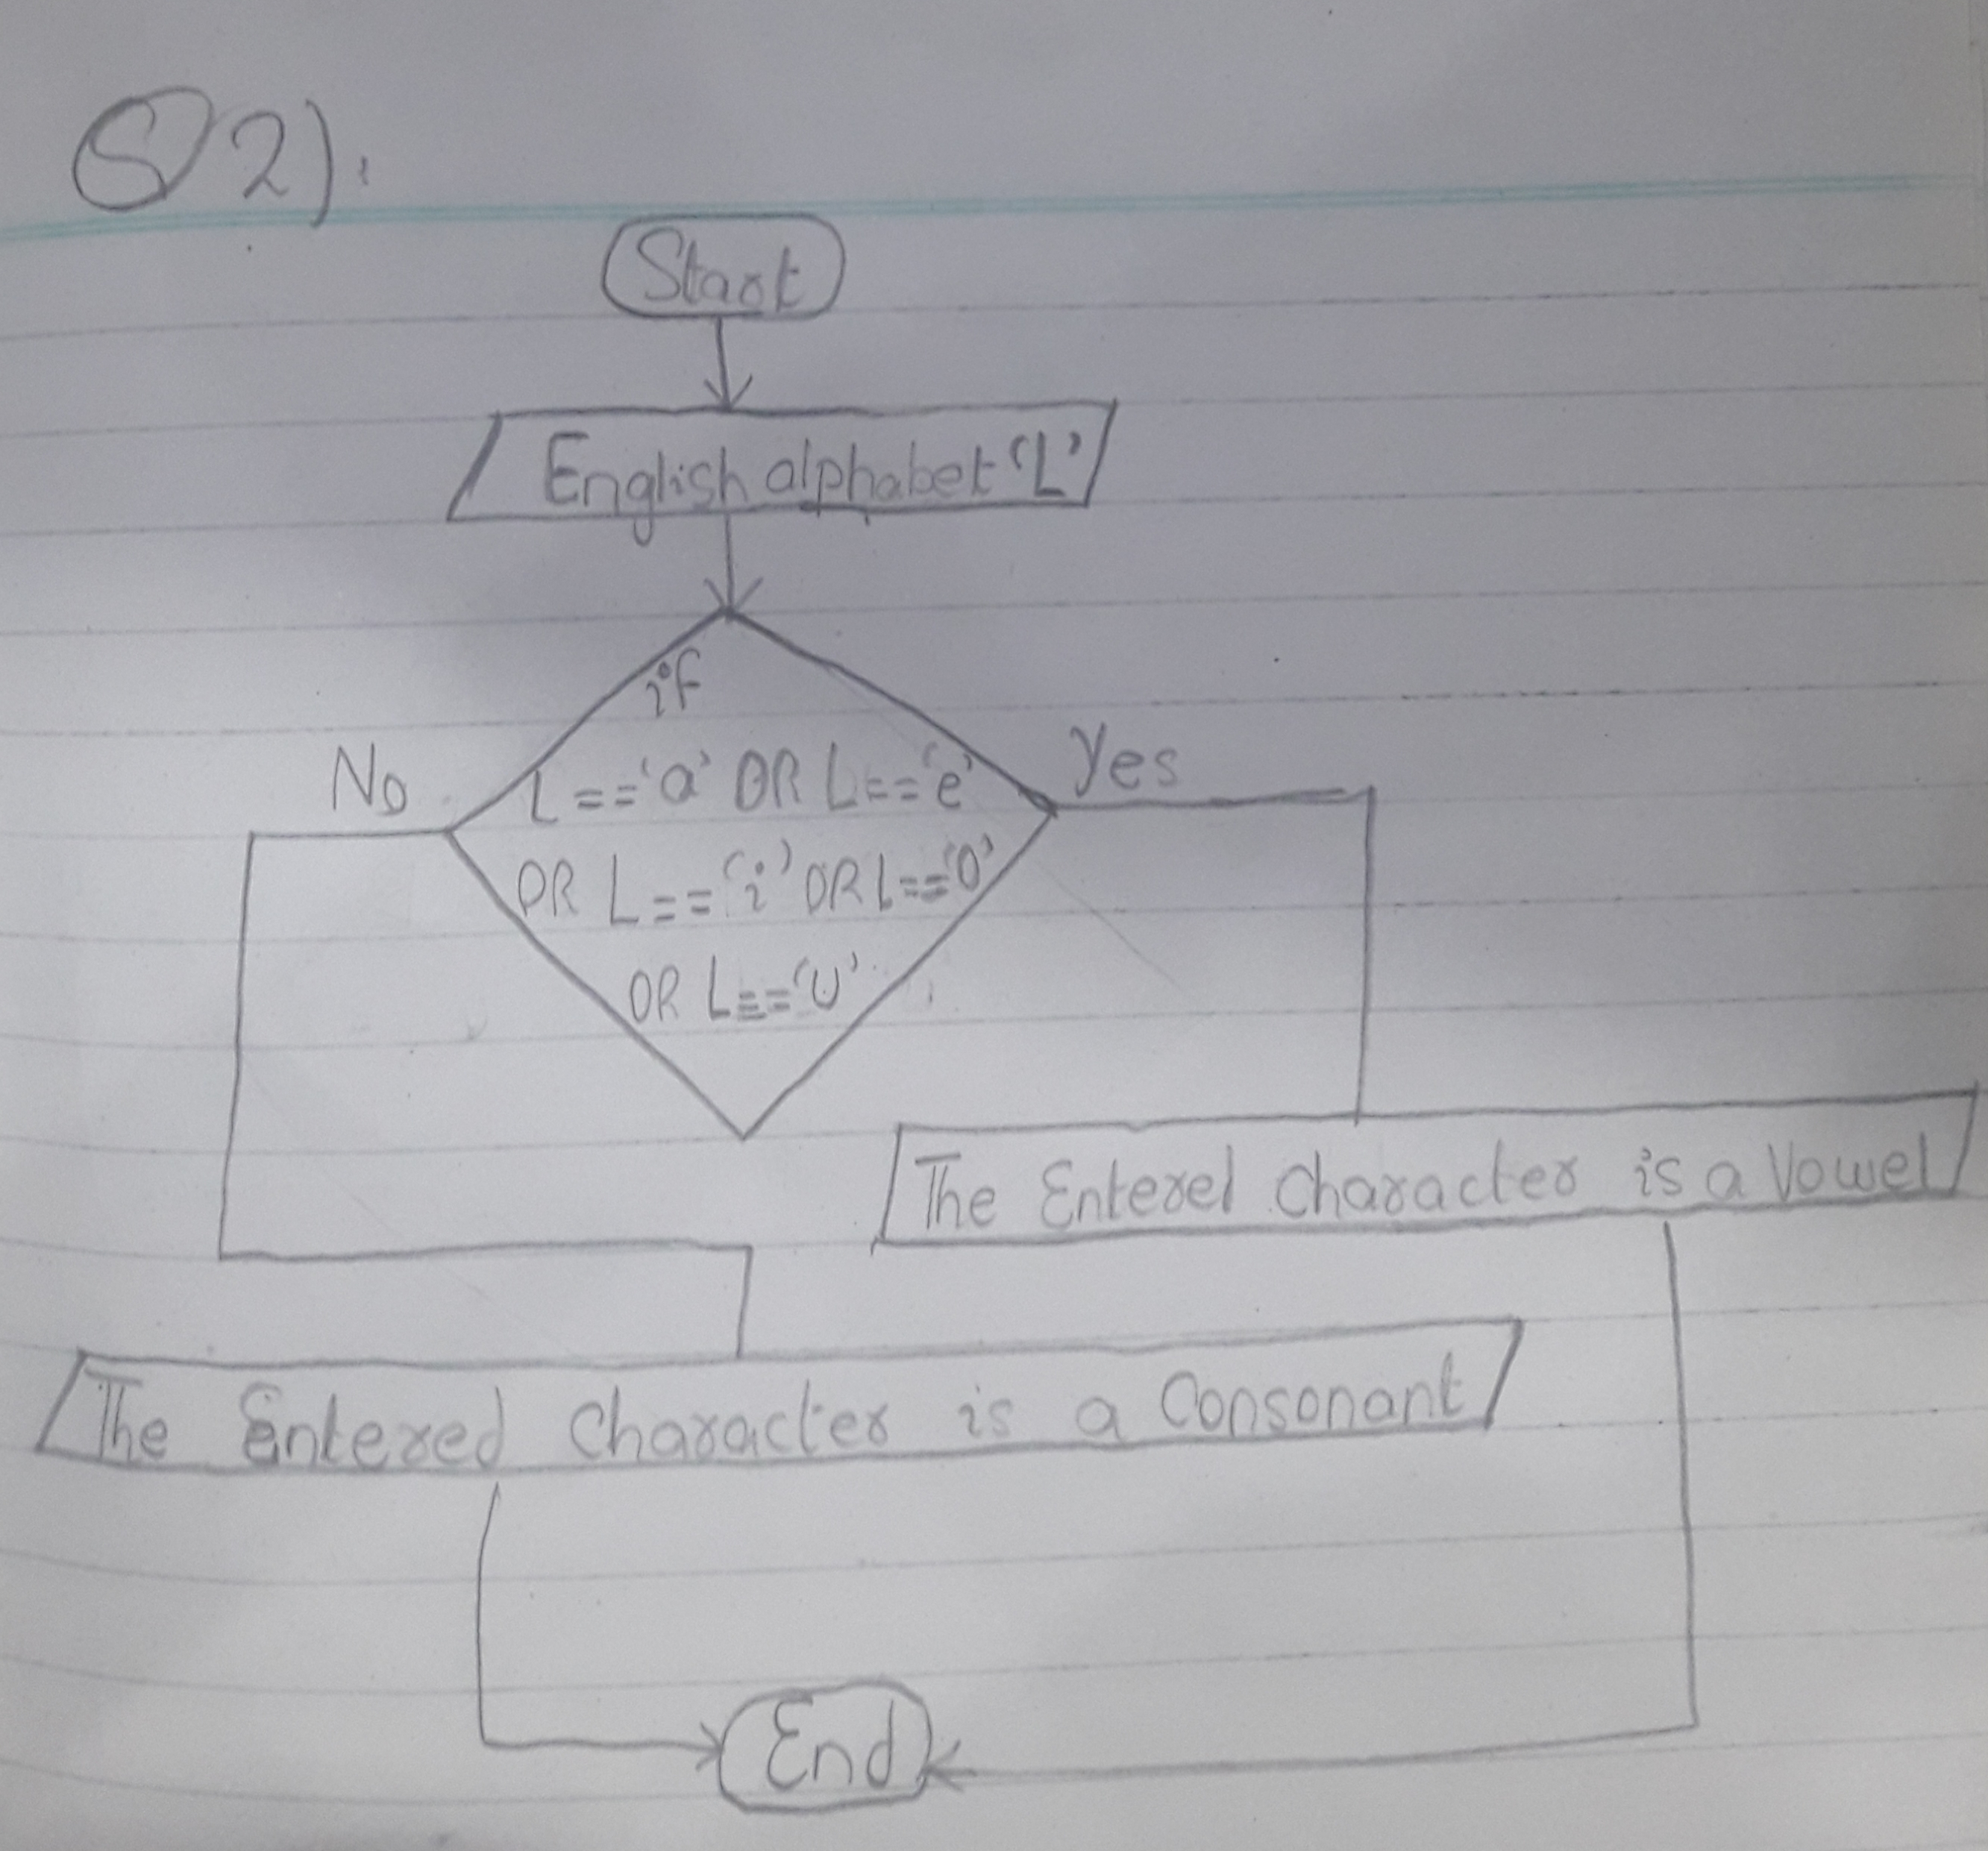 Q2):
Start
English alphabet 'L'
if
No
Yes
L == 'a' OR L == 'e'
OR L == 'i' OR L == 'O'
OR L == 'U'
The Enterel Character is a Vowel
The Entered Character is a Consonant
End